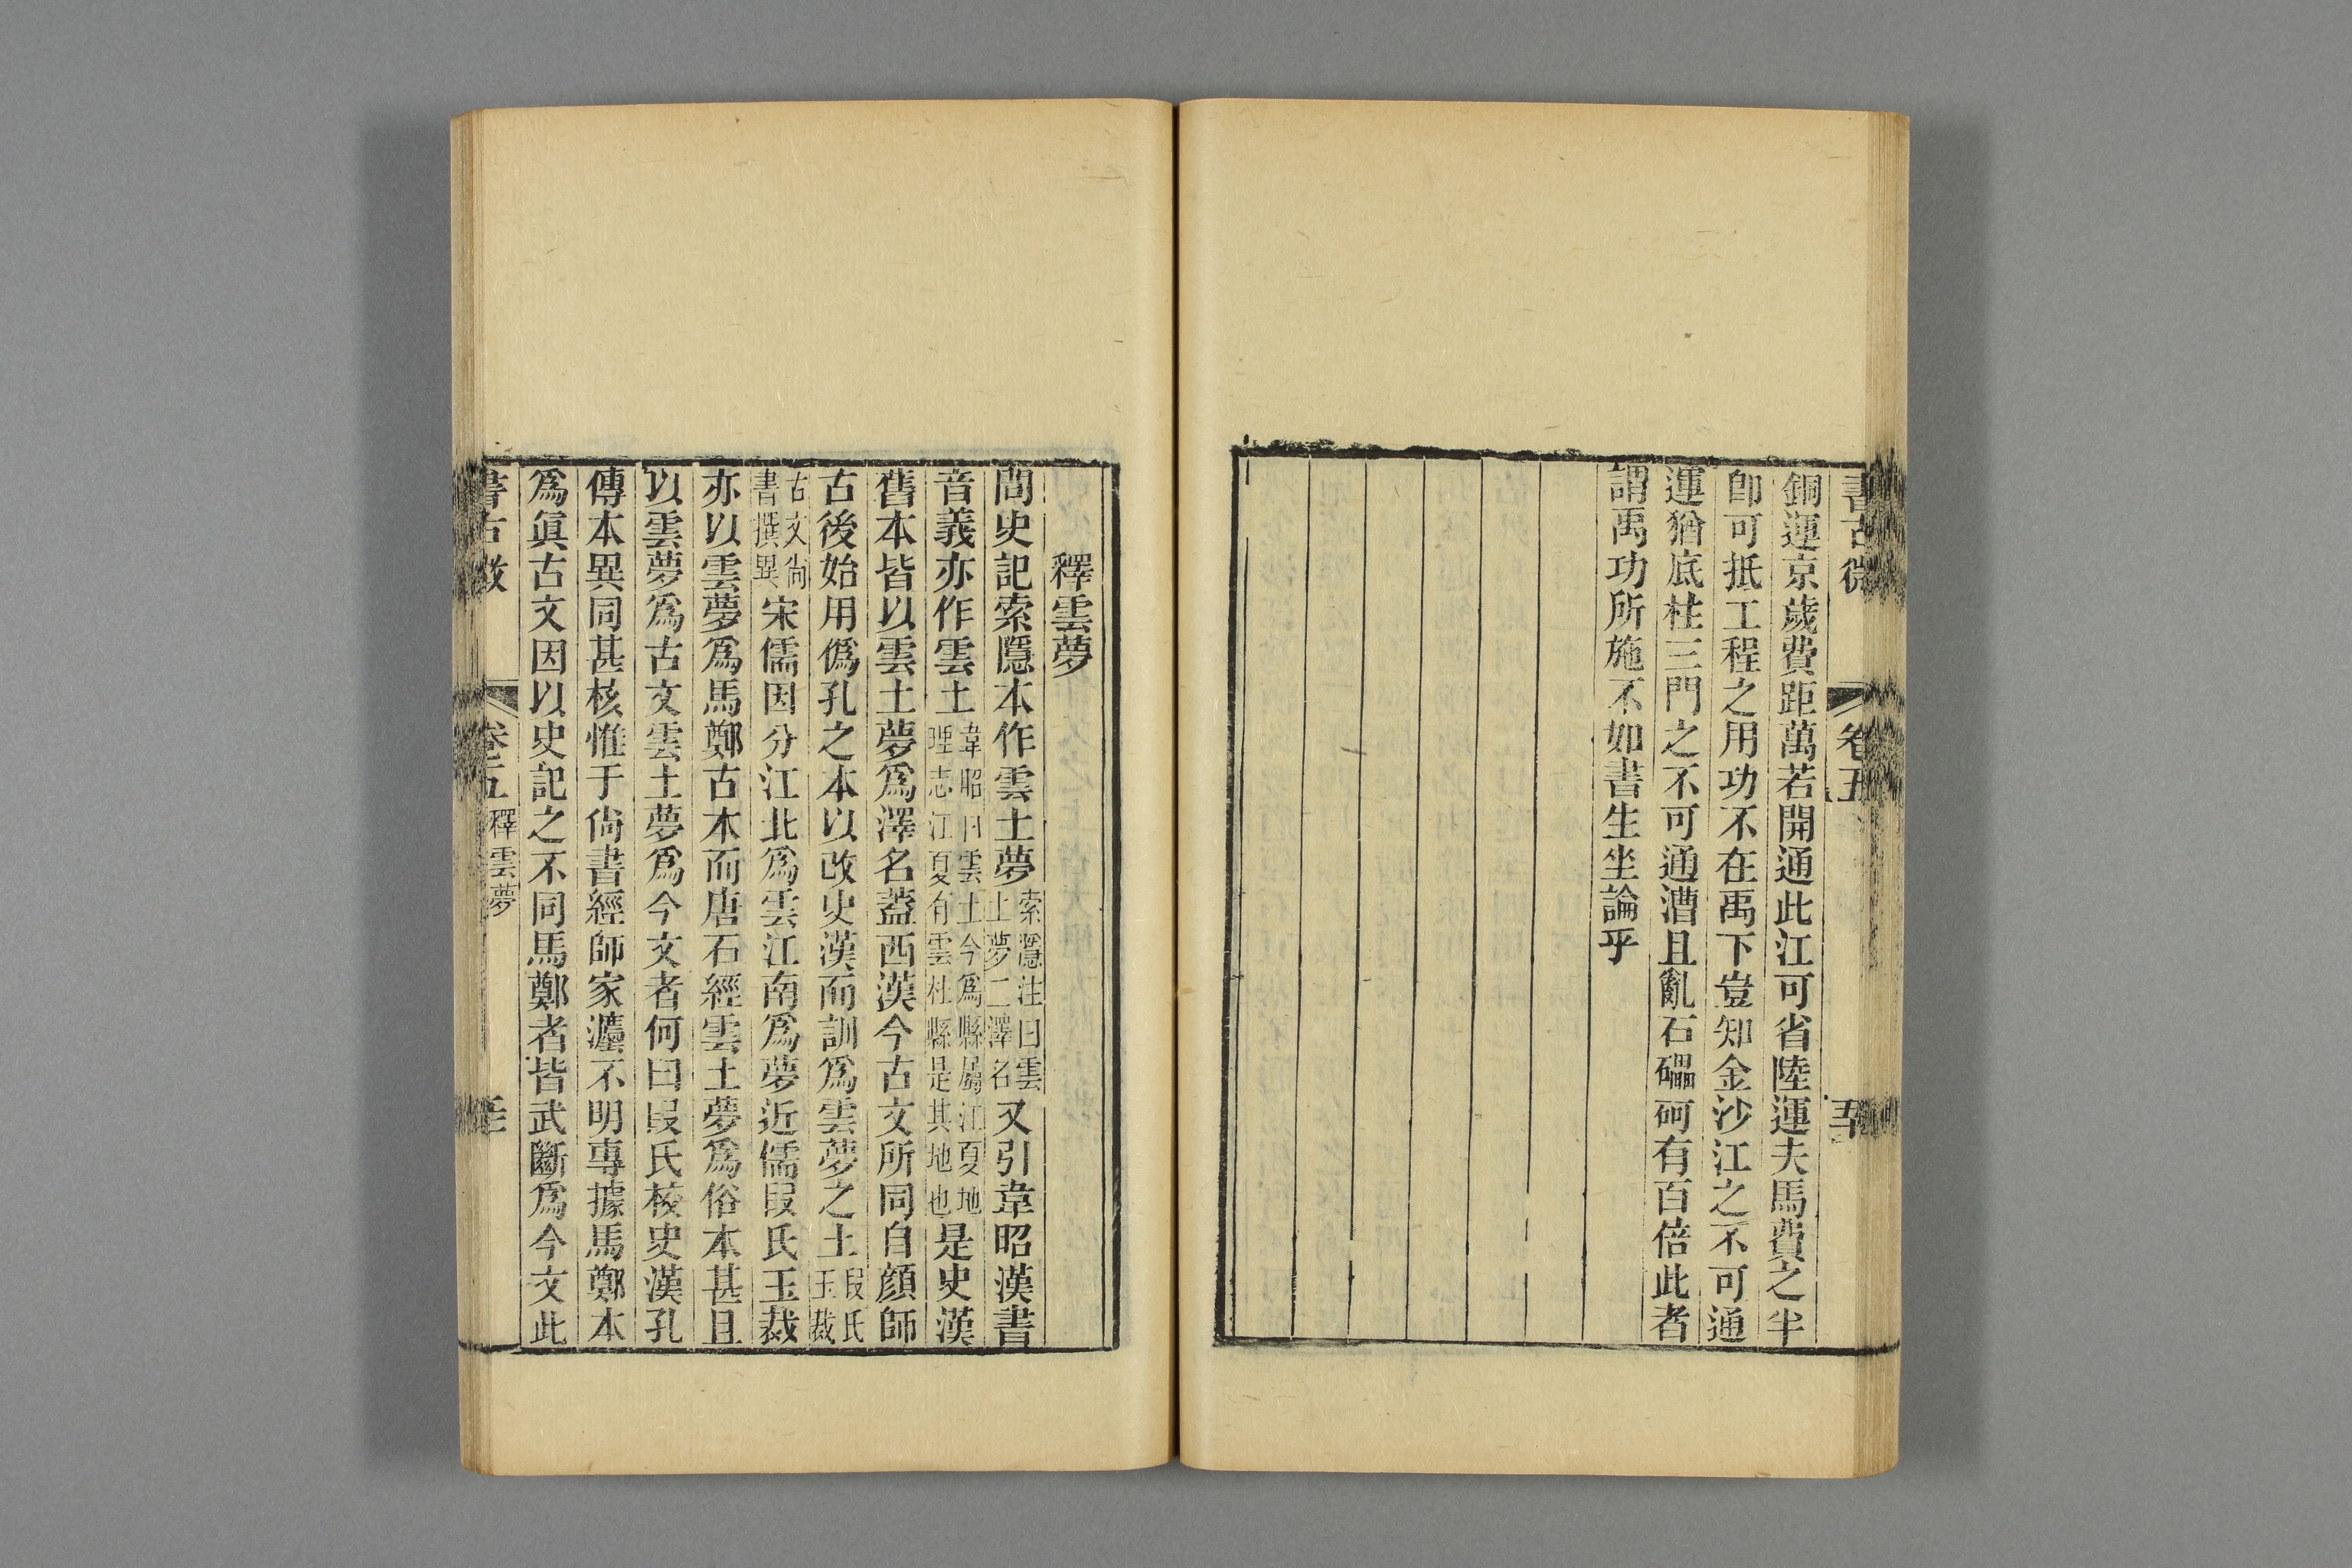 書古微 卷五
銅運京歲費距萬若開通此江可省陸運夫馬費之半
卽可抵工程之用功不在禹下豈知金沙江之不可通
運猶底柱三門之不可通漕且亂石礧砢有百倍此者
謂禹功所施不如書生坐論乎
釋雲夢
問史記索隱本作雲土夢索隱注曰雲土夢二澤名又引韋昭漢書
音義亦作雲土韋昭曰雲土今爲縣屬江夏地理志江夏有雲杜縣是其地也是史漢
舊本皆以雲土夢爲澤名蓋西漢今古文所同自顏師
古後始用僞孔之本以改史漢而訓爲雲夢之土段氏玉裁
古文尙書撰異宋儒因分江北爲雲江南爲夢近儒段氏玉裁
亦以雲夢爲馬鄭古本而唐石經雲土夢爲俗本甚且
以雲夢爲古文雲土夢爲今文者何曰段氏校史漢孔
傳本異同甚核惟于尙書經師家灋不明專據馬鄭本
爲眞古文因以史記之不同馬鄭者皆武斷爲今文此
書古微 卷五 釋雲夢